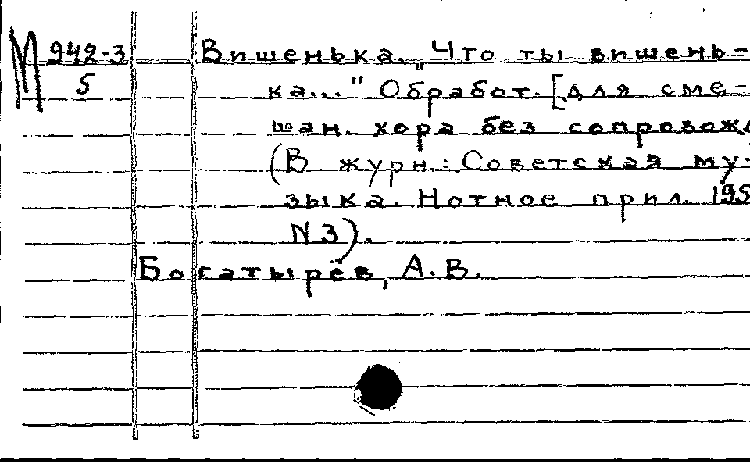 М 942-3 Вишенька. "Что ты вишень-
5 ка..." Обработ. [для сме-
шан. хора без сопровожд
(В журн.: Советская му-
зыка. Нотное прил. 195
N 3).
Богатырёв, А.В.